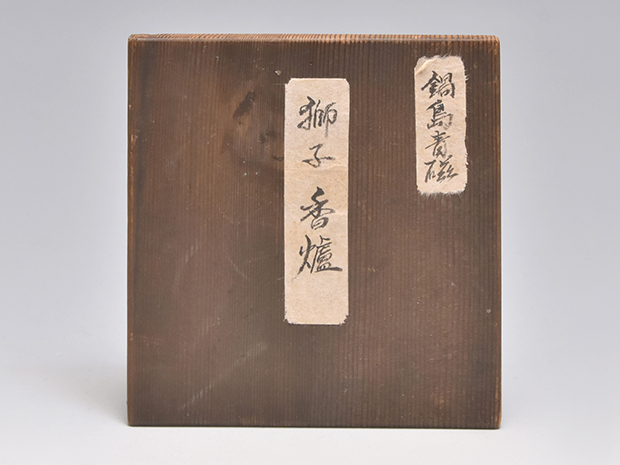 鍋島青磁
獅子香爐